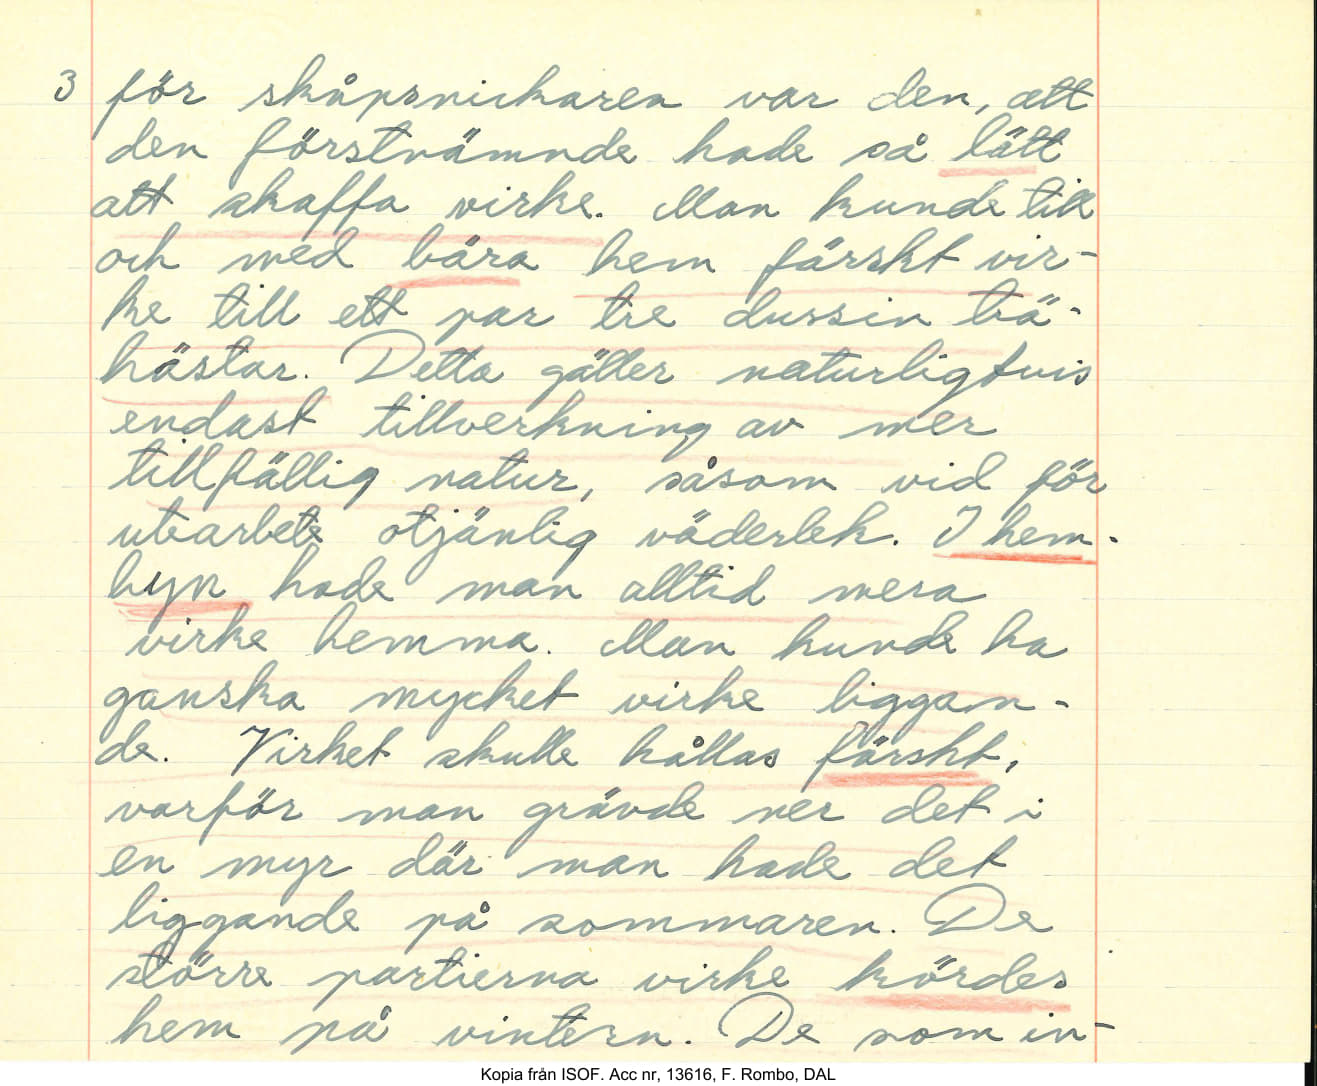 3 för skåpsnickaren var den, att
den förstnämnde hade så lätt
att skaffa virke. Man kunde till
och med bära hem färskt vir-
ke till ett par tre dussin trä-
hästar. Detta gäller naturligtvis
endast tillverkning av mer
tillfällig natur, såsom vid för
utearbete otjänlig väderlek. I hem-
byn hade man alltid mera
virke hemma. Man kunde ha
ganska mycket virke liggan-
de. Virket skulle hållas färskt,
varför man grävde ner det i
en myr där man hade det
liggande på sommaren. De
större partierna virke kördes
hem på vintern. De som in-
Kopia från ISOF. Acc nr, 13616, F. Rombo, DAL